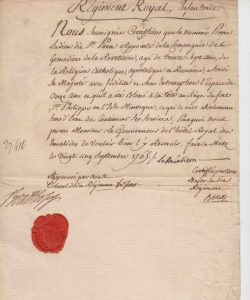 Régiment Royal, Infanterie
Nous Soussignés Certifions que le nommé Pierre
Ludieu dit St. Pierre Appointé de la Compagnie de
Grenadiers de la agé de trente Sept ans, de
la Religion Catholique, apostolique et Romaine, a Servi
Sa Majesté avec fidélité et Sans Interruption l'espace de
Onze Ans et qu'il a été blessé à la tête au Siege du fort
St. Philippe en l'isle Minorque, lequel le met Absolument
hors d'Etat de Continuer Ses Services, Pourquoi nous
prions Monsieur Le Gouverneur de l'hôtel Royal des
Invalides de Vouloir bien l'y Recevoir. fait à Metz
le Vingt cinq Septembre 1763.
Approuvé par nous
Colonel dud. Régiment
Certifié par nous
Major dudit
Régiment